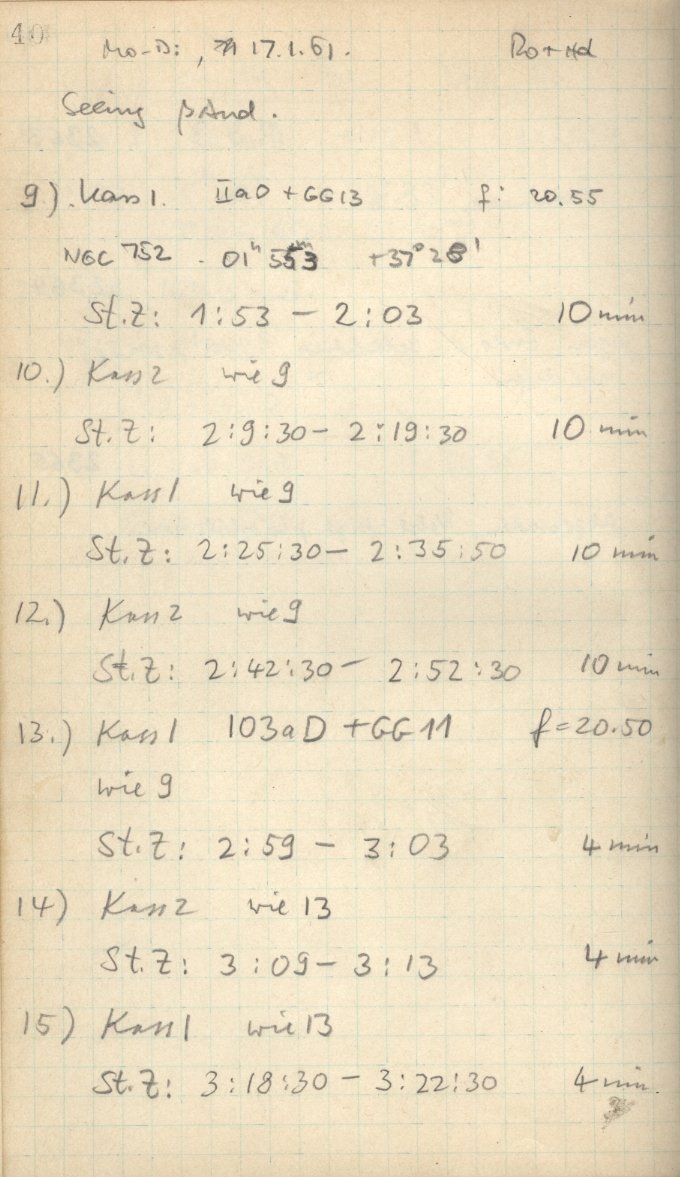 40
Mo-Di, 17.1.61. Ro + Hd
Seeing β And.
9). Kass 1. IIaO + GG13 f: 20.55
NGC 752 - 01ʰ 553ᵐ +37° 28'
St.Z: 1:53 - 2:03 10 min
10.) Kass 2 wie 9
St.Z: 2:9:30 - 2:19:30 10 min
11.) Kass 1 wie 9
St.Z: 2:25:30 - 2:35:50 10 min
12.) Kass 2 wie 9
St.Z: 2:42:30 - 2:52:30 10 min
13.) Kass 1 103aD + GG 11 f = 20.50
wie 9
St.Z: 2:59 - 3:03 4 min
14) Kass 2 wie 13
St.Z: 3:09 - 3:13 4 min
15) Kass 1 wie 13
St.Z: 3:18:30 - 3:22:30 4 min